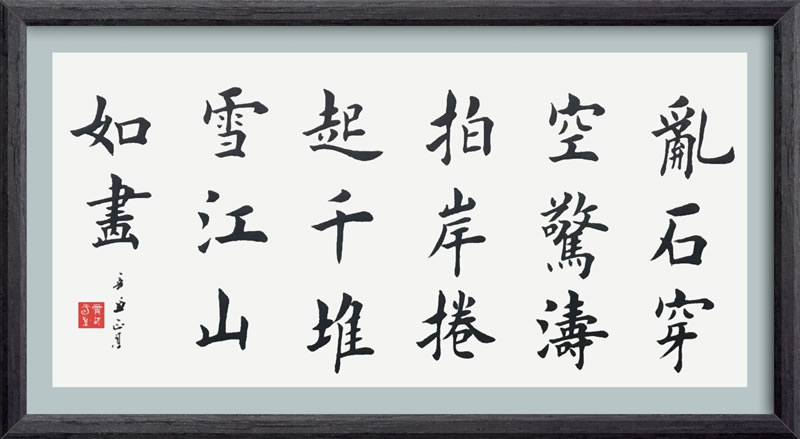 亂石穿
空驚濤
拍岸捲
起千堆
雪江山
如畫